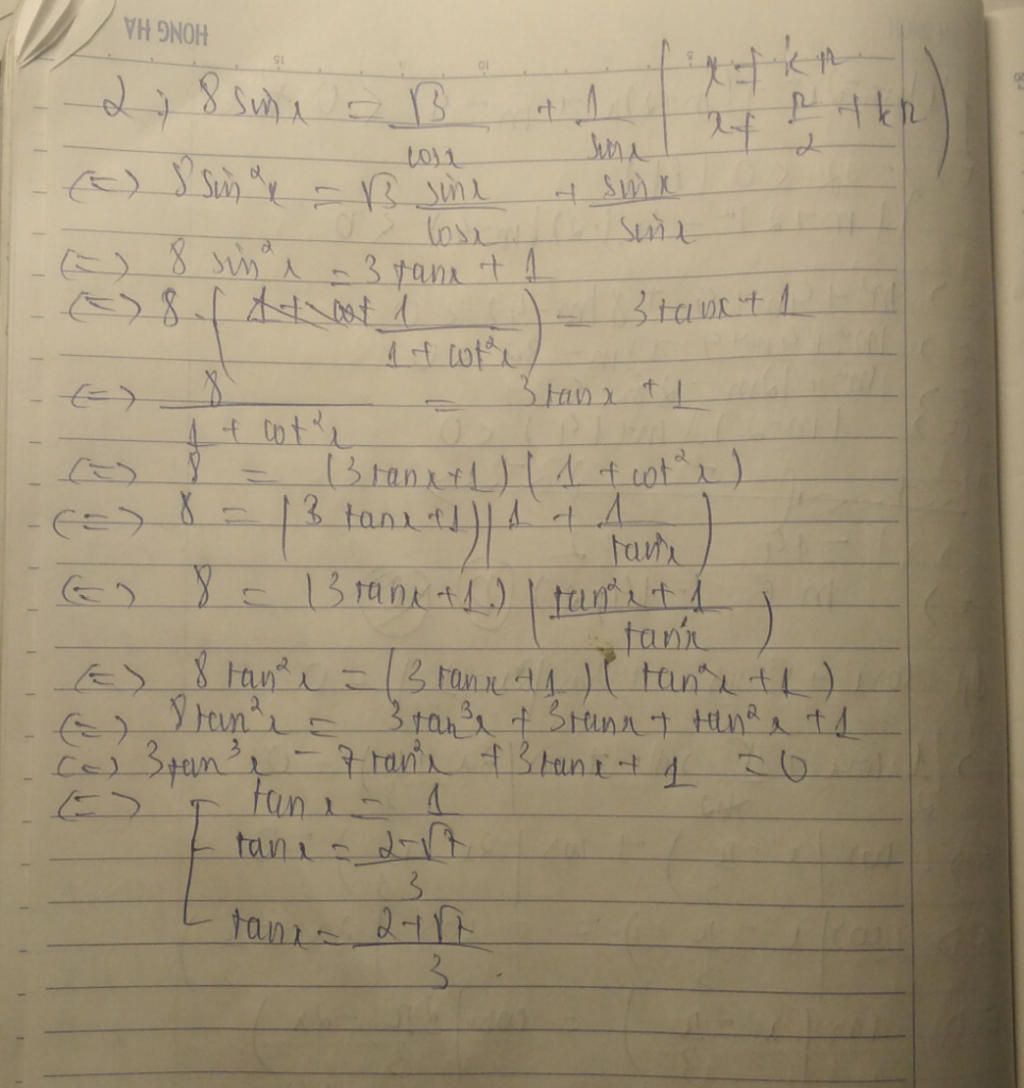 HONG HA
2, 8 sinx = √3/cosx + 1/sinx ( x ≠ kπ
x ≠ π/2 + kπ )
(=) 8 sin²x = √3 sinx/cosx + sinx/sinx
(=) 8 sin²x = 3 tanx + 1
(=) 8 . ( 1/(1 + cot²x) ) = 3 tanx + 1
(=) 8/(1 + cot²x) = 3 tanx + 1
(=) 8 = (3 tanx + 1)(1 + cot²x)
(=) 8 = (3 tanx + 1)(1 + 1/tan²x)
(=) 8 = (3 tanx + 1)((tan²x + 1)/tan²x)
(=) 8 tan²x = (3 tanx + 1)(tan²x + 1)
(=) 8 tan²x = 3 tan³x + 3 tanx + tan²x + 1
(=) 3 tan³x - 7 tan²x + 3 tanx + 1 = 0
(=) [ tanx = 1
tanx = (2-√7)/3
tanx = (2+√7)/3